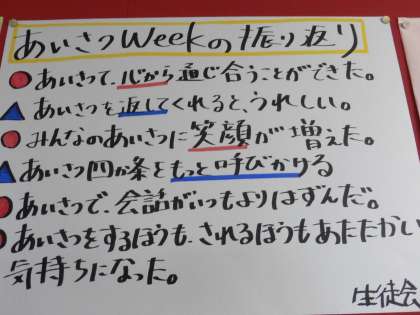 あいさつWeekの振り返り
●あいさつで、心から通じ合うことができた。
▲あいさつを返してくれると、うれしい。
●みんなのあいさつに笑顔が増えた。
▲あいさつ四か条をもっと呼びかける
●あいさつで、会話がいつもよりはずんだ。
●あいさつをするほうも、されるほうもあたたかい
気持ちになった。
生徒会